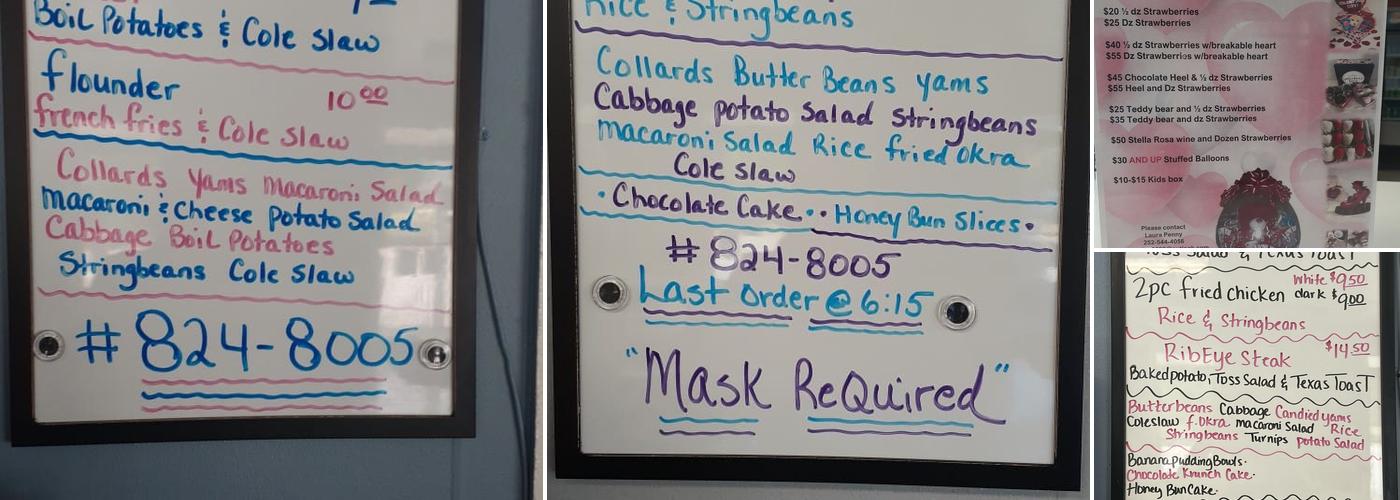 Boil Potatoes & Cole Slaw
flounder
10 00
french fries & Cole Slaw
Collards Yams Macaroni Salad
macaroni & Cheese Potato Salad
Cabbage Boil Potatoes
Stringbeans Cole Slaw
# 824-8005
Rice & Stringbeans
Collards Butter Beans yams
Cabbage potato Salad Stringbeans
macaroni Salad Rice fried Okra
Cole Slaw
· Chocolate Cake · · Honey Bun Slices ·
# 824-8005
Last Order @ 6:15
"Mask ReQuired"
$20 ½ dz Strawberries
$25 Dz Strawberries
$40 ½ dz Strawberries w/breakable heart
$55 Dz Strawberries w/breakable heart
$45 Chocolate Heel & ½ dz Strawberries
$55 Heel and Dz Strawberries
$25 Teddy bear and ½ dz Strawberries
$35 Teddy bear and dz Strawberries
$50 Stella Rosa wine and Dozen Strawberries
$30 AND UP Stuffed Balloons
$10-$15 Kids box
Please contact
Laura Penny
252-544-4056
Toss Salad & Texas Toast
2pc fried chicken white $9.50
dark $9.00
Rice & Stringbeans
RibEye Steak $14.50
Baked potato, Toss Salad & Texas Toast
Butterbeans Cabbage Candied yams
Coleslaw f.Okra macaroni Salad Rice
Stringbeans Turnips potato Salad
Banana Pudding Bowls ·
Chocolate Krunch Cake ·
Honey Bun Cake ·